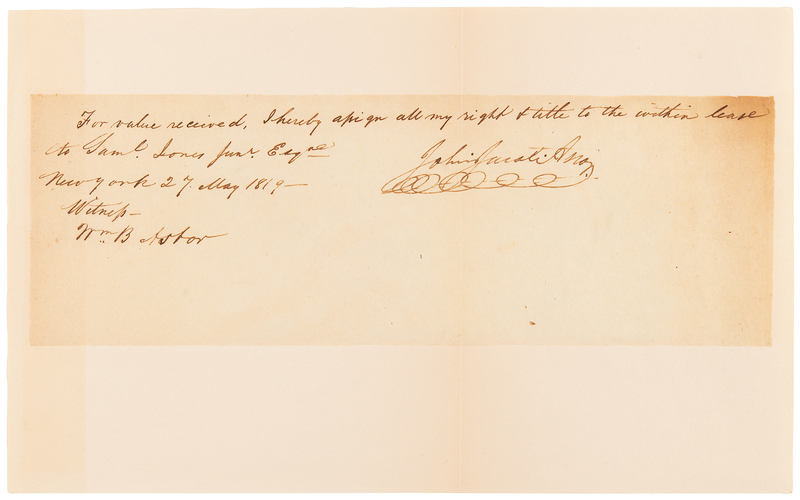 For value received, I hereby assign all my right & title to the within lease
to Saml. Jones junr. Esqre
New york 27. May 1819—
John Jacob Astor
Witness—
Wm. B Astor